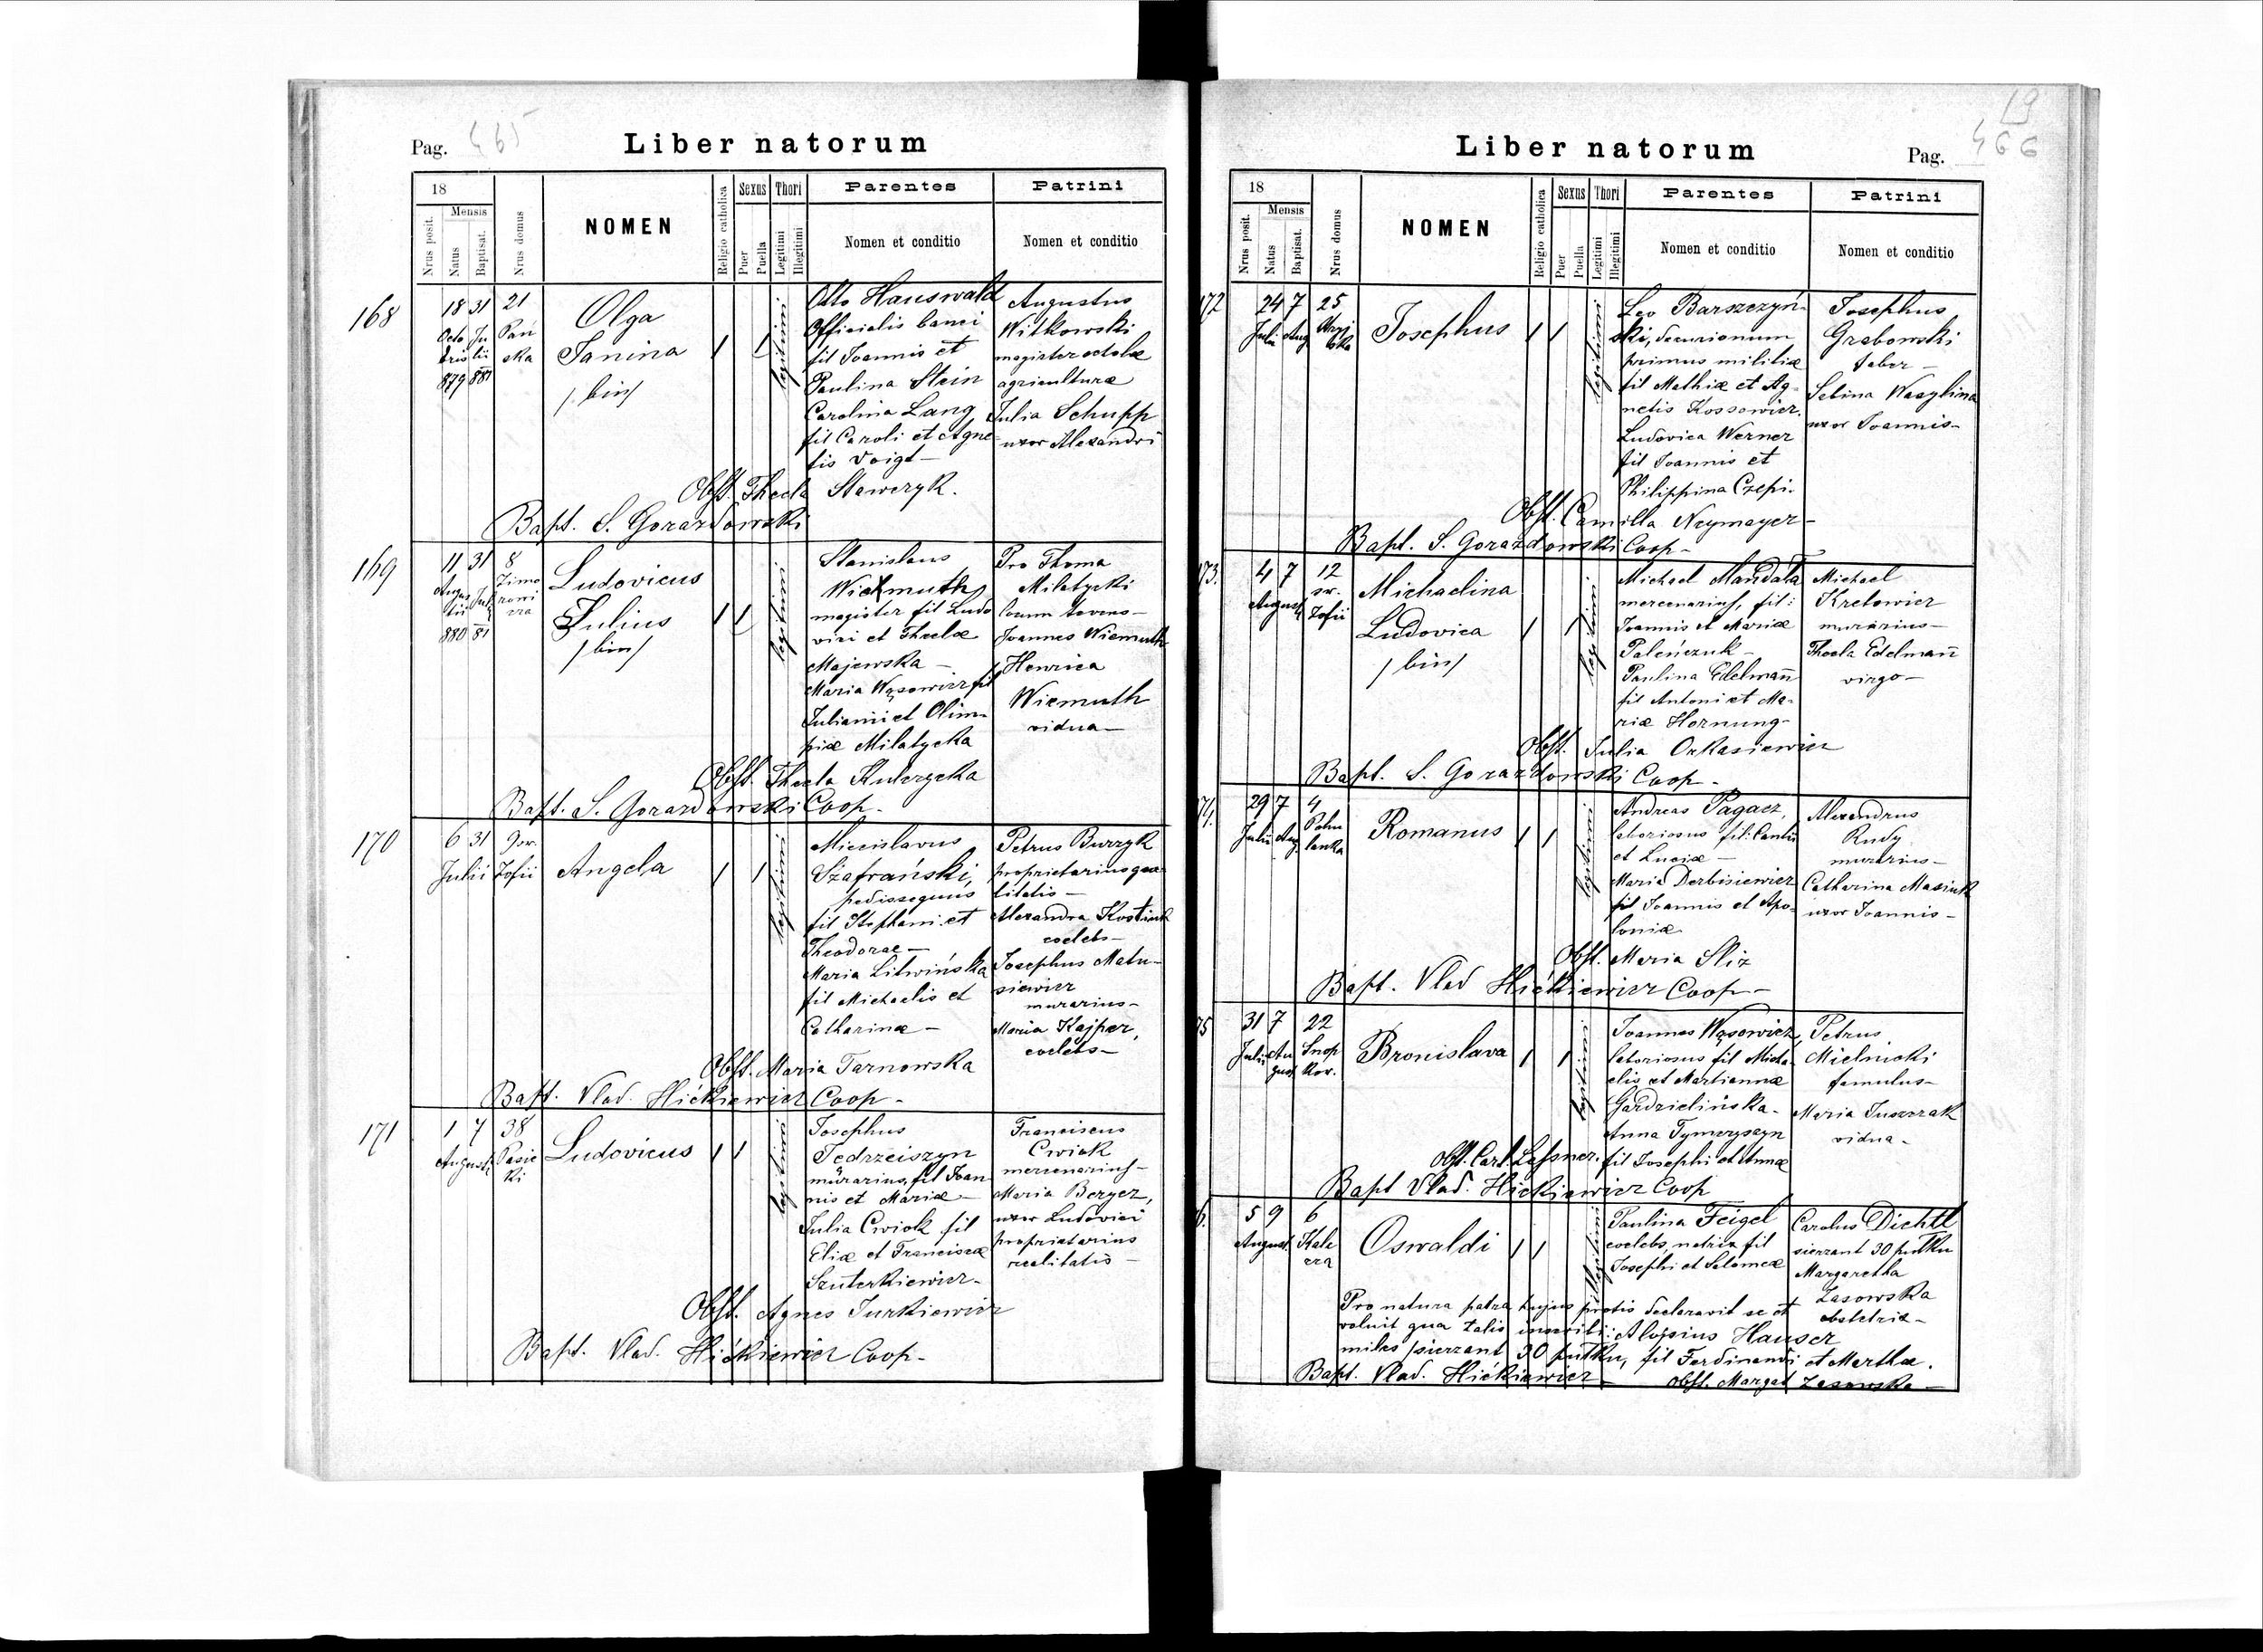 Pag. 465
Liber natorum
18
Mensis
Nrus posit.
Natus
Baptisat.
Nrus domus
NOMEN
Religio catholica
Sexus
Puer
Puella
Thori
Legitimi
Illegitimi
Parentes
Nomen et conditio
Patrini
Nomen et conditio
168
18 31 21
Octo Ju Pań
bris lii ska
879 881
Olga
Janina
/bin/
legitimi
Otto Hauswald
Officialis banci
fil Joannis et
Paulina Stein
Carolina Lang
fil Caroli et Agne
tis Voigt —
Augustus
Witkowski
magister scholæ
agriculturæ
Julia Schupp
uxor Alexandri
Obst. Thecla Staweryk.
Bapt. S. Gorazdowski
169
11 31 8
Augus Juli Zimo
tii rowi
880 81 cza
Ludovicus
Julius
/bin/
legitimi
Stanislaus
Wiekmuth,
magister fil Ludo
vici et Theclæ
Majewska —
Maria Wąsowicz fil
Juliani et Olim-
piæ Milatycka
Pro Thoma
Milatycki
locum tenens —
Joannes Wiemuth
Henrica
Wiemuth
vidua —
Obst. Thecla Kulczycka
Bapt. S. Gorazdowski Coop.-
170
6 31 9 św.
Julii Zofii
Angela
legitimi
Miecislavus
Szafrański,
pedissequus
fil Stephani et
Theodorae —
Maria Litwińska
fil Michaelis et
Catharinæ —
Petrus Burzyk
proprietarius rea
litatis —
Alexandra Kostiuk
coelebs —
Josephus Matu-
siewicz
murarius —
Maria Kajper,
coelebs —
Obst. Maria Tarnowska
Bapt. Vlad. Hićkiewicz Coop -
171
1 7 38
Augusti Pasie
ki
Ludovicus
legitimi
Josephus
Jedrzeiszyn
murarius, fil Joan
nis et Mariæ —
Julia Cwiok fil
Eliæ et Franciscæ
Szuterkiewicz -
Franciscus
Cwiok
mercenarius —
Maria Berger,
uxor Ludovici
proprietarius
realitatis —
Obst. Agnes Jurkiewicz
Bapt. Vlad. Hićkiewicz Coop -
19
466
Liber natorum
Pag.
18
Mensis
Nrus posit.
Natus
Baptisat.
Nrus domus
NOMEN
Religio catholica
Sexus
Puer
Puella
Thori
Legitimi
Illegitimi
Parentes
Nomen et conditio
Patrini
Nomen et conditio
172
24 7 25
Julii Aug
Josephus
legitimi
Leo Barszczyń-
ski, decurionum
primus militiæ
fil Mathiæ et Ag-
netis Kossowicz.
Ludovica Werner
fil Joannis et
Philippina Czepi.
Josephus
Grabowski
faber —
Sebina Wasylina
uxor Joannis —
Obst. Camilla Neymayer -
Bapt. S. Gorazdowski Coop -
173.
4 7 12
August św.
Zofii
Michaelina
Ludovica
/bin/
legitimi
Michael Mandała
mercenarius, fil:
Joannis et Mariæ
Paleńczuk —
Paulina Edelmañ
fil Antoni et Ma-
riæ Hornung -
Michael
Kretowicz
murarius —
Thecla Edelmañ
virgo —
Obst. Julia Oukasiewicz
Bapt. S. Gorazdowski Coop -
174.
29 7 4
Julii Aug. Pohu
lanka
Romanus
legitimi
Andreas Pagacz,
laboriosus fil: Cantii
et Luciæ —
Maria Derbisiewicz
fil Joannis et Apo-
loniæ
Alexandrus
Rudy
murarius —
Catharina Masiuk
uxor Joannis —
Obst. Maria Sliz
Bapt. Vlad Hićkiewicz Coop -
75
31 7 22
Julii Au Snop
gust kov.
Bronislava
legitimi
Joannes Wąsowicz,
laboriosus fil Micha-
elis et Martiannæ
Gardzielińska -
Anna Tymczyszyn
fil Josephi et Annæ
Petrus
Mielnicki
famulus —
Maria Juszczak
vidua -
Obst. Carl. Lassner.
Bapt Vlad. Hićkiewicz Coop
6.
5 9 6
August. Kale
cza
Oswaldi
illegitimi
Paulina Feigel
coelebs, natrix fil
Josephi et Salomeæ
Carolus Diehtl
sierżant 30 pułku
Margaretha
Zasowska
obstetrix —
Pro natura patre hujus prolis declaravit se et
voluit qua talis inscribi: Aloisius Hauser
miles /sierżant 30 pułku, fil Ferdinandi et Marthæ.
Bapt. Vlad. Hićkiewicz —
Obst. Margat Zasowska —